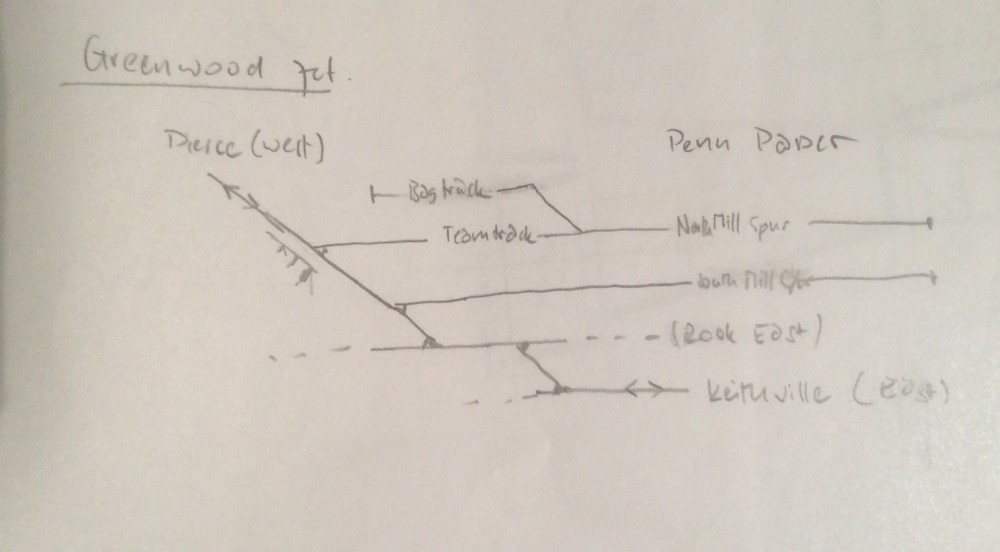 Greenwood Jct.
Pierce (West)
Penn Paper
Bog track
Team track
North Mill Spur
South Mill Spur
(Rock East)
Keithville (East)